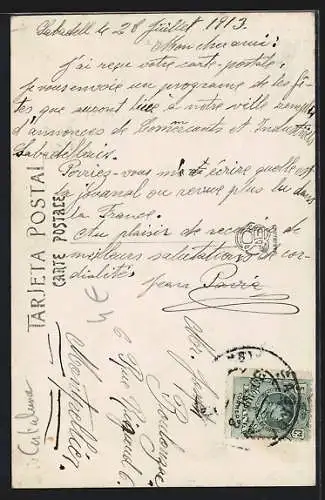 Sabadell le 28 Juillet 1913.
Mon cher ami:
J'ai reçu votre carte-postale.
Je vous envoie un programe de les fê-
tes que auront lieu à notre ville rempli
d'annonces de Commerçants et Industriels
Sabadellais.
Pourriez-vous m'écrire quelle est
la journal ou revue plus lu dans
la France.
Au plaisir de recevoir de
meilleurs salutations et cor-
dialités
Jean
TARJETA POSTAL
CARTE POSTALE
Mr. Joseph
6 Rue
Montpellier
4€
Cataluna